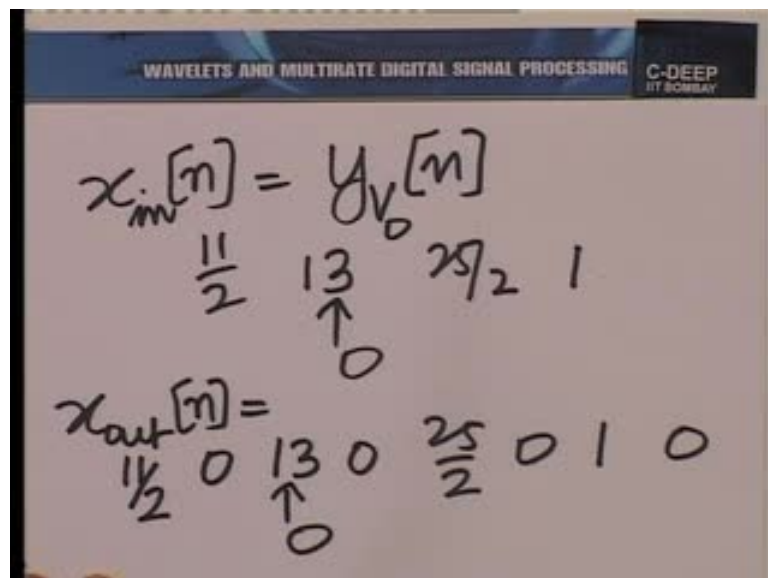 WAVELETS AND MULTIRATE DIGITAL SIGNAL PROCESSING
C-DEEP
IIT BOMBAY
x_in[n] = y_V_0[n]
11/2 13 25/2 1
↑
0
x_out[n] =
11/2 0 13 0 25/2 0 1 0
↑
0